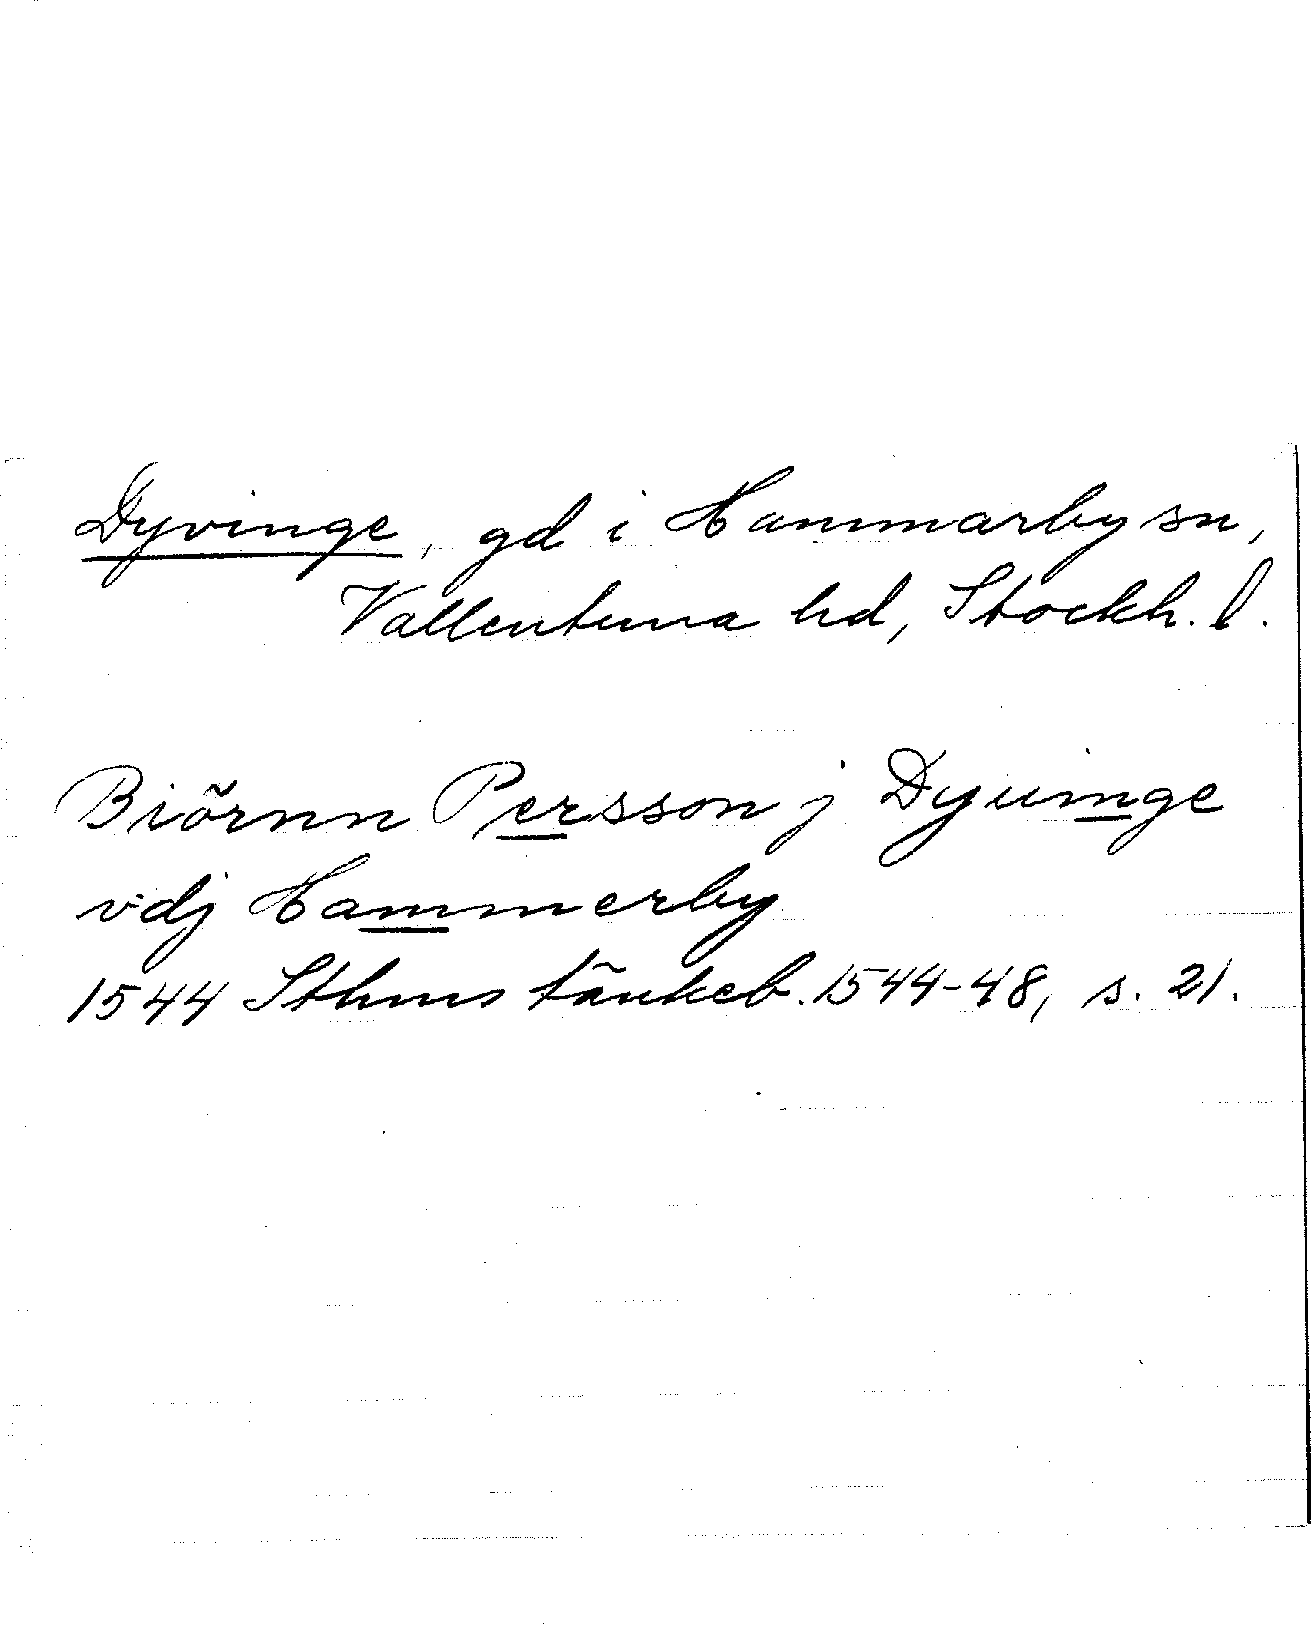 Dyvinge, gd i Hammarby sn,
Vallentuna hd, Stockh. l.
Biörnn Persson j Dyuinge
vdj Hammerby
1544 Sthms tänkeb. 1544-48, s. 21.